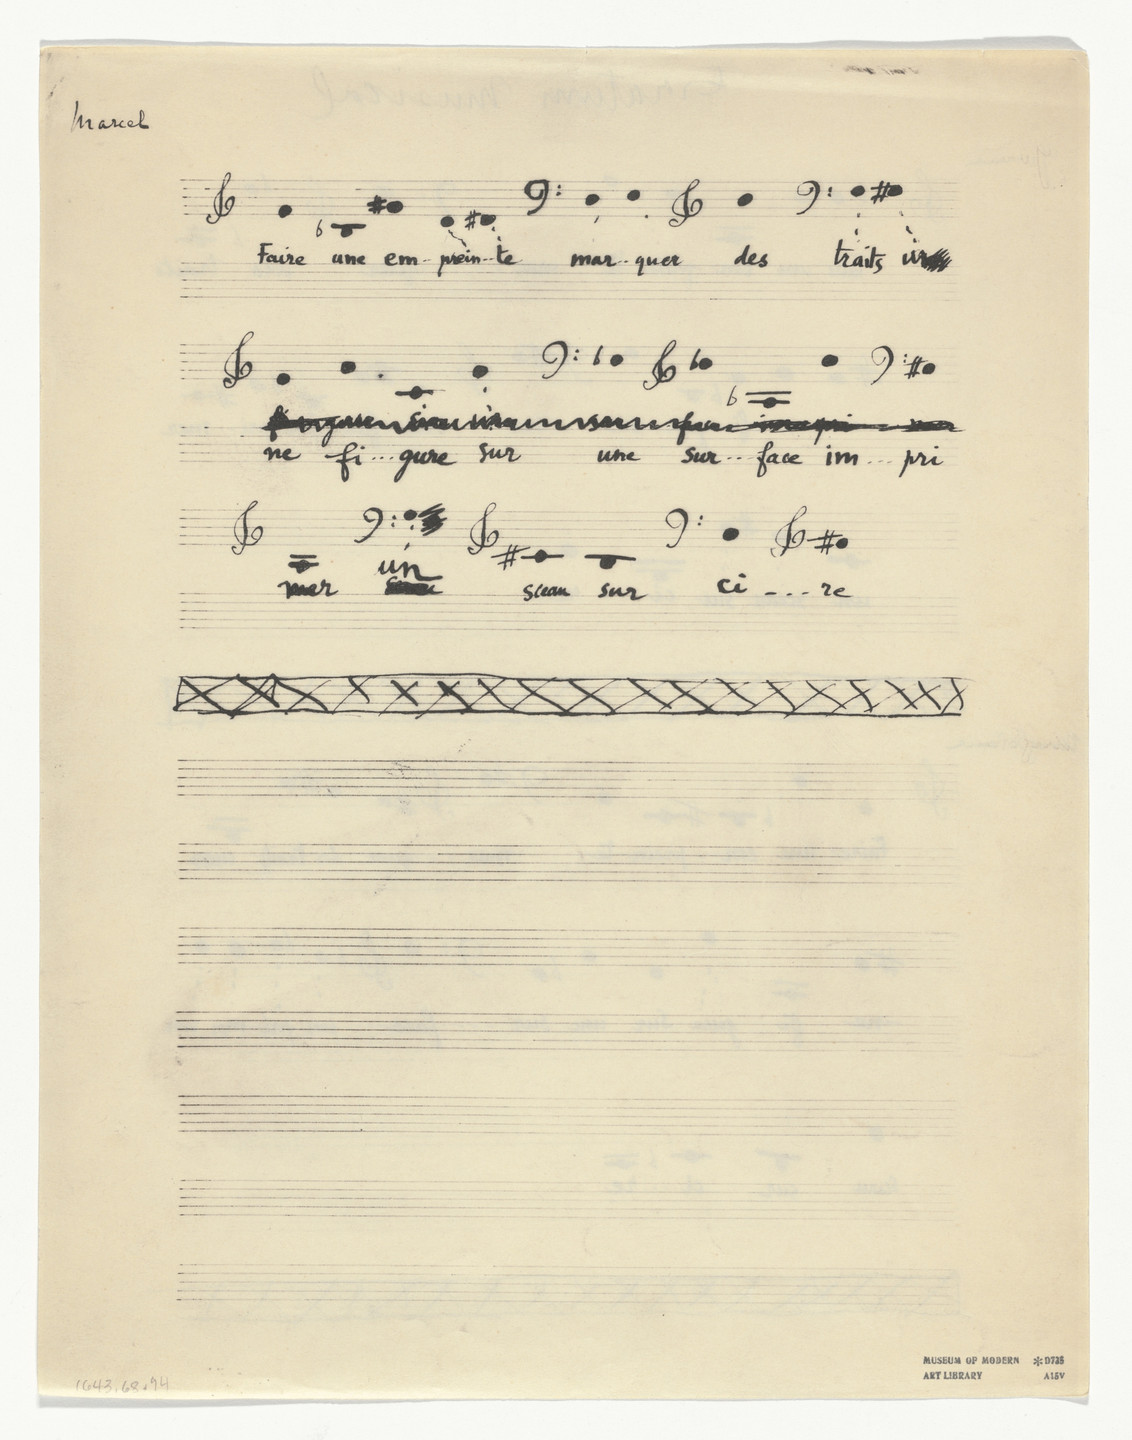 Marcel
Faire une em- prein- te mar- quer des traits u
ne fi...gure sur une sur... face im... pri
mer un sceau sur ci ---- re
1643.68.94
MUSEUM OF MODERN ✻D735
ART LIBRARY A15V